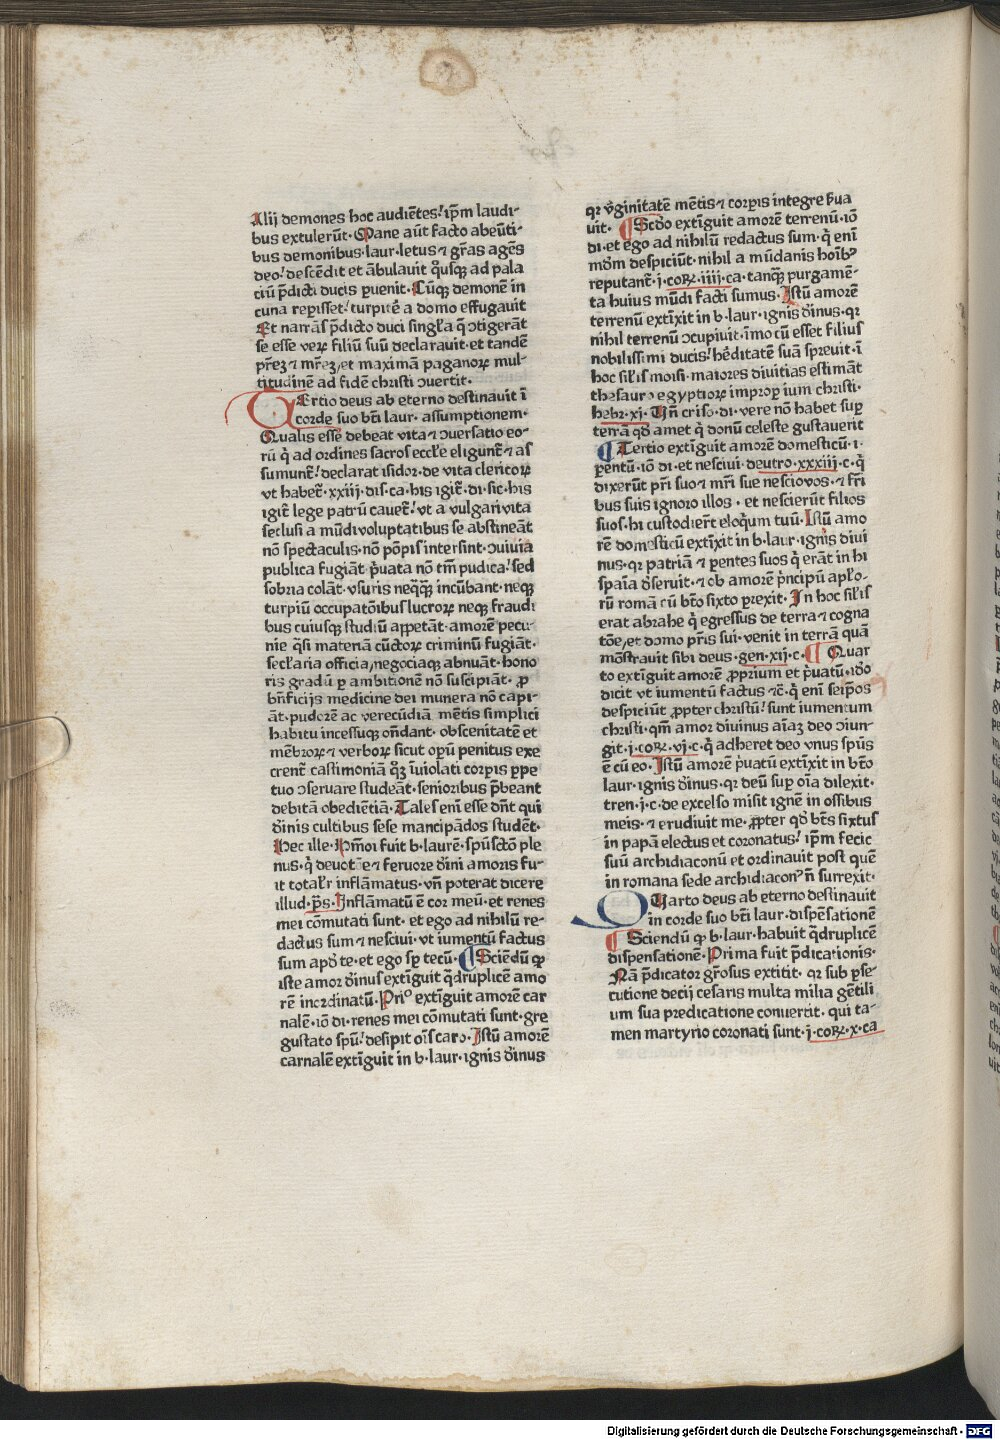 Alij demones hoc audiētes! ip̄m laudi-
bus extulerūt· Mane aūt facto abeūti-
bus demonibus·laur·letus ⁊ gr̄as agēs
deo! descēdit et ābulauit q̊usqꝫ ad pala
ciū p̄dicti ducis ꝑuenit· Cūqꝫ demonē in
cuna reꝑisset! turpitē a domo effugauit
Et narrās p̄dicto duci singl̓a q̄ ↄtigerāt
se esse veꝝ filiū suū declarauit·et tandē
pr̄eꝫ ⁊ mr̄eꝫ,et maximā paganoꝝ mul-
titudinē ad fidē christi ↄuertit·
TErtio deus ab eterno destinauit ī
corde suo bt̄i laur· assumptionem·
Qualis esse debeat vita ⁊ ↄuersatio eo-
rū q̄ ad ordines sacros eccl̓e eligunt̄ ⁊ as
sumunt̄! declarat isidor·de vita clericoꝝ
vt habet̄· xxiij·dis·ca·his igit̄·di·sic·his
igit̄ lege patrū cauet̄! vt a vulgari vita
seclusi a mūdi voluptatibus se abstineāt
nō spectaculis·nō pōpis intersint·ↄuiuia
publica fugiāt·p̓uata nō tm̄ pudica! sed
sobria colāt·vsuris neq̄qꝫ incūbant·neqꝫ
turpiū occupatōibus lucroꝝ neqꝫ fraudi
bus cuiusqꝫ studiū appetāt·amorē pecu-
nie q̄si materiā cūctoꝝ criminū fugiāt·
secl̓aria officia,negociaqꝫ abnuāt·hono
ris gradū ꝑ ambitionē nō suscipiāt· ꝓ
bn̄ficijs medicine dei munera nō capi-
āt·pudorē ac verecūdiā mētis simplici
habitu incessuqꝫ on̄dant· obscenitatē et
mēbroꝝ ⁊ verboꝝ sicut oꝑū penitus exe
crent̄ castimoniā qꝫ īuiolati corpis ꝑpe
tuo ↄseruare studeāt·senioribus p̄beant
debitā obediētiā·Tales eni esse dn̄t qui
d̓inis cultibus sese mancipādos studēt·
Hec ille·Hm̄oi fuit b·laurē·spūsctō ple
nus·q̄ deuotōe ⁊ feruore d̓ini amoris fu-
it total̓r inflāmatus·vn̄ poterat dicere
illud·p̄s·Inflāmatū ē cor meū·et renes
mei cōmutati sunt·et ego ad nihilū re-
dactus sum ⁊ nesciui·vt iumentū factus
sum apd̓ te·et ego sꝑ tecū· Sciēdū ꝙ
iste amor d̓inus extīguit q̄druplicē amo
rē inordinatū·Prio extīguit amorē car
nalē·iō di·renes mei cōmutati sunt·gre
gustato spū! desipit oīs caro·Istū amorē
carnalē extīguit in b·laur·ignis d̓inus
qꝛ v̓ginitatē mētis ⁊ corpis integre s̄ua
uit· Scd̓o extīguit amorē terrenū·iō
di·et ego ad nihilū redactus sum·q̄ enī
mūdm despiciūt·nihil a mūdanis hoībꝰ
reputant̄·j·coꝝ·iiij·ca·tanqꝫ purgamē-
ta huius mūdi facti sumus·Istū amorē
terrenū extīxit in b·laur·ignis d̓inus·qꝛ
nihil terrenū ↄcupiuit·īmo cū esset filius
nobilissimi ducis! hēditatē suā spreuit·ī
hoc sil̓is moisi·maiores diuitias estimāt
thesauro egyptioꝝ improꝑium christi·
hebꝛ·xj·Un̄ criso·di·vere nō habet suꝑ
terrā qd̓ amet q̄ donū celeste gustauerit
Tertio extīguit amorē domesticū·i·
ꝑentū·iō di·et nesciui·deutro·xxxiij·c·q̄
dixerūt pr̄i suo ⁊ mr̄i sue nescio vos·⁊ fr̄i
bus suis ignoro illos·et nescierūt filios
suos·hi custodier̄t eloq̄um tuū·Istū amo
rē domesticū extīxit in b·laur·ignis diui
nus·qꝛ patriā ⁊ ꝑentes suos q̄ erāt in hi
spaīa d̓seruit·⁊ ob amorē p̓ncipū apl̓o-
rū romā cū bt̄o sixto ꝑexit·In hoc sil̓is
erat abrahe q̄ egressus de terra ⁊ cogna
tōe,et domo pr̄is sui·venit in terrā quā
mōstrauit sibi deus·gen·xij·c· Quar
to extīguit amorē ꝓprium et p̓uatū·id̓o
dicit vt iumentū factus ⁊c̄·q̄ enī seip̄os
despiciūt ꝓpter christū! sunt iumentum
christi·qm̄ amor diuinus aīaꝫ deo ↄiun-
git·j·coꝝ·vj·c·q̄ adheret deo vnus sp̄us
ē cū eo·Istū amorē p̓uatū extīxit in bt̄o
laur·ignis d̓inus·qꝛ deū suꝑ oīa dilexit·
tren·j·c·de excelso misit ignē in ossibus
meis·⁊ erudiuit me·ꝓpter qd̓ bt̄s sixtus
in papā electus et coronatus! ip̄m fecit
suū archidiaconū et ordinauit post quē
in romana sede archidiaconꝰ n̄ surrexit·
QUarto deus ab eterno destinauit
in corde suo bt̄i laur·dispēsationē
Sciendū ꝙ b·laur·habuit q̄druplicē
dispensationē·Prima fuit p̄dicationis·
Nā p̄dicator gr̄osus extitit·qꝛ sub ꝑse-
cutione decij cesaris multa milia gētili
um sua predicatione conuertit·qui ta-
men martyrio coronati sunt·j·coꝝ·x·ca
Digitalisierung gefördert durch die Deutsche Forschungsgemeinschaft - DFG